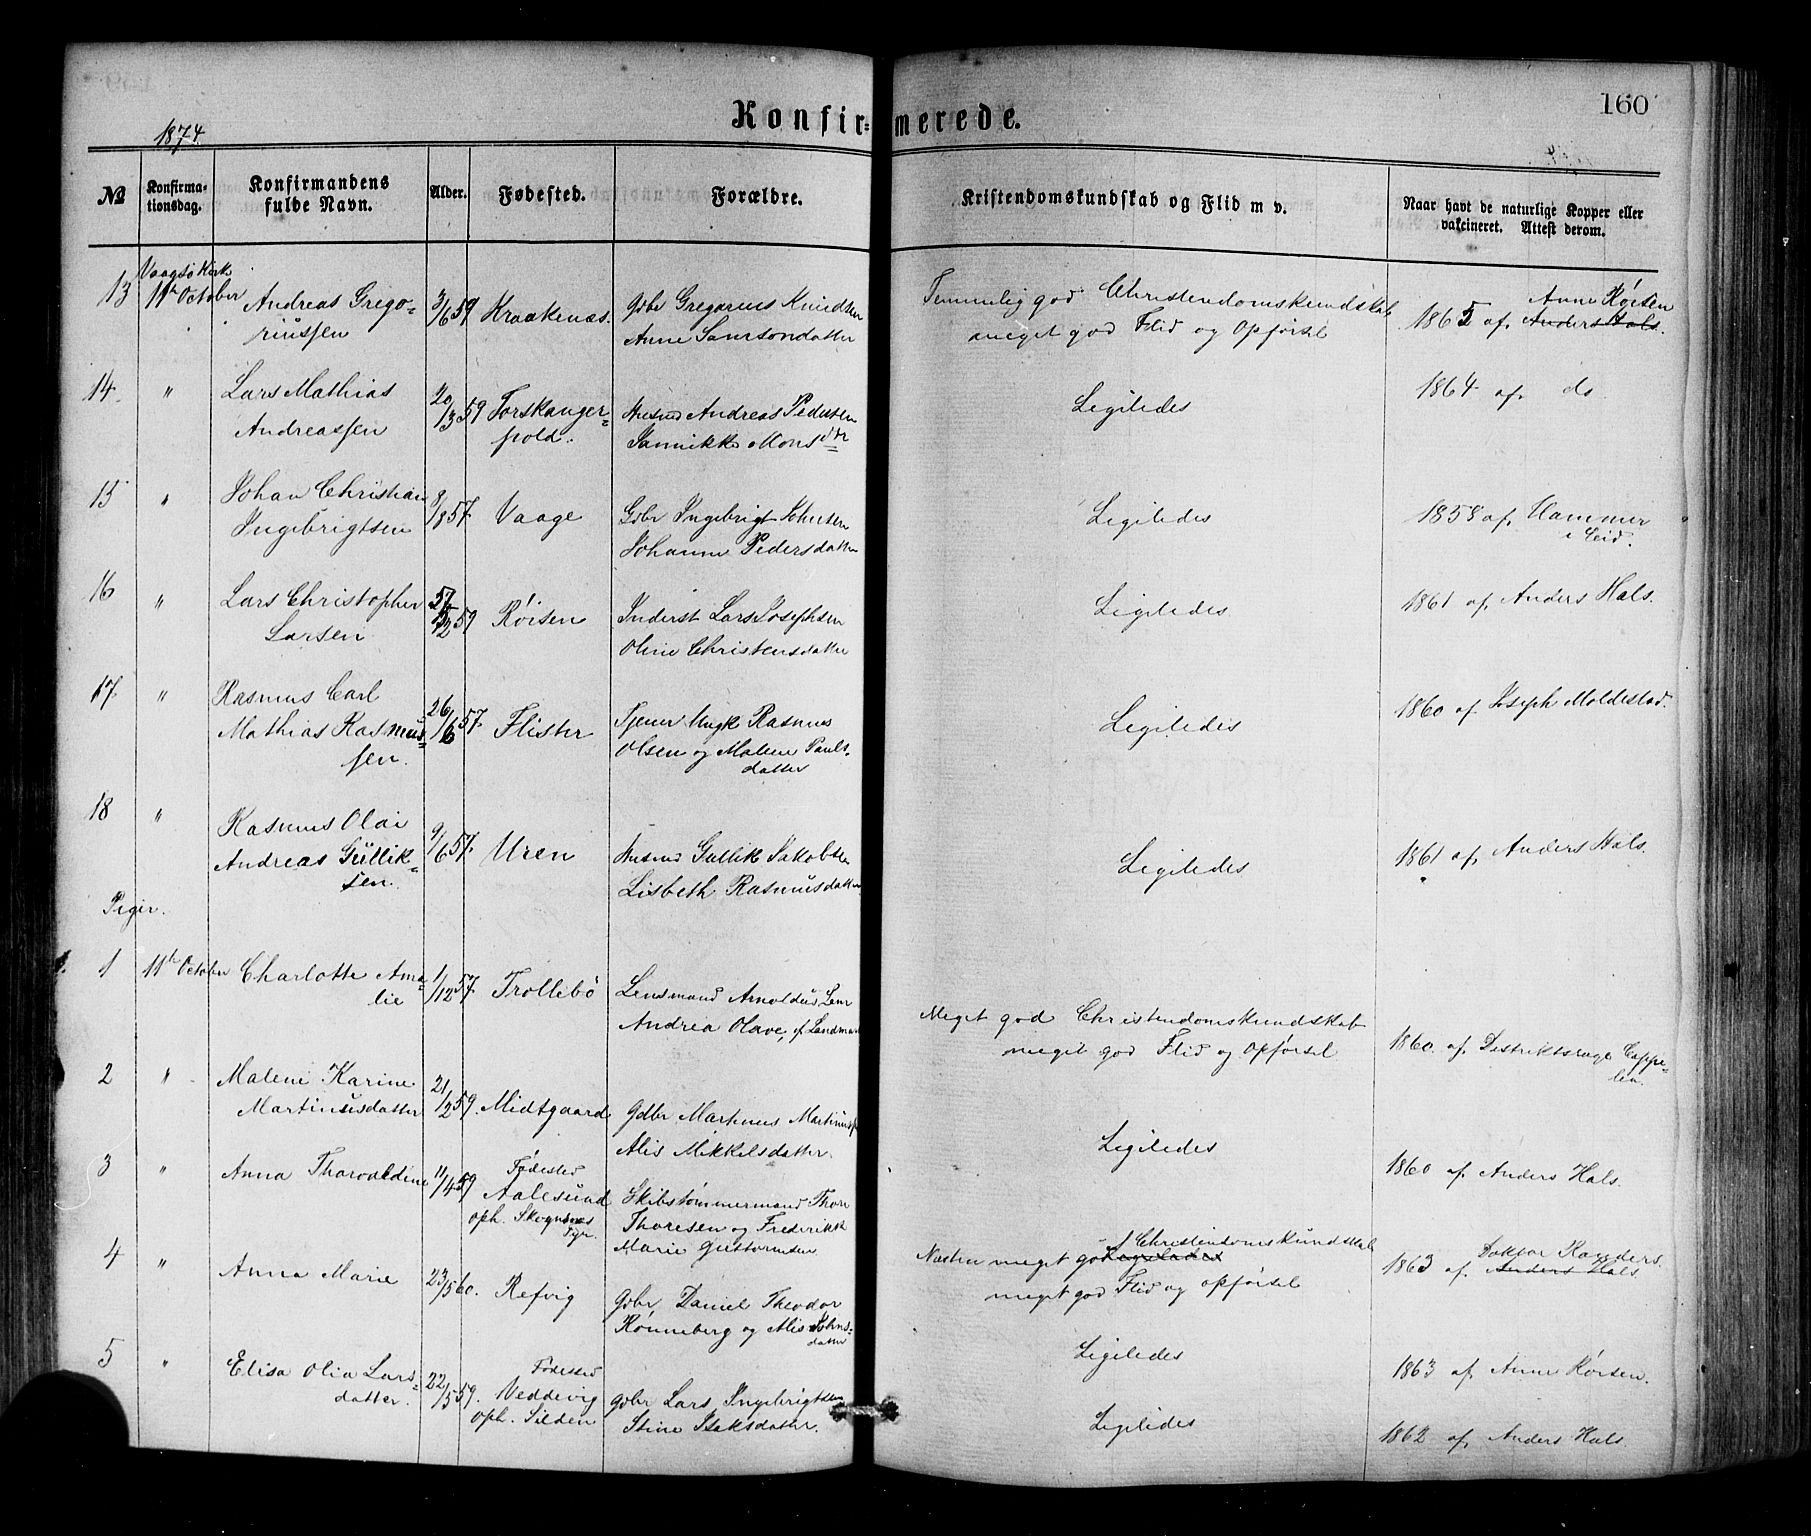 160
Konfirmerede.
1874.
№
Konfirmationsdag.
Konfirmandens fulde Navn.
Alder.
Fødested.
Forældre.
Kristendomskundskab og Flid m v.
Naar havt de naturlige Kopper eller
vakcineret. Attest derom.
Vaagsö Kirke
13 11te October Andreas Grego- 3/6 59 Kraakenæs. Gdbr Gregorius Knudsen Temmelig god Christendomskundskab Anne Röisen
riussen Anne Samsondatter meget god Flid og Opförsel 1865 af Anders Hals.
14. " Lars Mathias 20/3 59 Torskanger- Husmd Andreas Pedersen Ligeledes 1864 af do
Andreassen pold. Jannikke Monsdtr
15 " Johan Christian 8/8 57. Vaage Gdbr Ingebrigt Johnsen Ligeledes 1858 af Hammer
Ingebrigtsen Johanne Pedersdatter i Eid.
16 " Lars Christopher 27/2 59 Röisen Inderst Lars Josephsen Ligeledes 1861 af Anders Hals.
Larsen Oline Christensdatter
17. " Rasmus Carl 26/6 57. Flister Tjener Ungk Rasmus Ligeledes 1860 af Joseph Moldestad.
Mathias Rasmus- Olsen og Malene Pauls-
sen. datter
18 " Rasmus Olai 9/6 57. Uren Husmd Gullik Jakobsen Ligeledes 1861 af Anders Hals.
Andreas Gullik- Lisbeth Rasmusdatter
sen.
Piger.
1 11te October Charlotte Ama- 1/12 57. Trollebö Lensmand Arnoldus Lem Meget god Christendomskundskab
lie Andrea Olave, f. Landmark meget god Flid og Opförsel 1860. af Distriktslæge Cappe-
len.
2 " Malene Karine 21/2 59. Midtgaard Gdbr Martinus Martinuss. Ligeledes 1860 af Anders Hals.
Martinusdatter Alis Mikkelsdatter.
3 " Anna Thorvaldine 11/4 59 Födested Skibstömmermand Thore Næsten meget god Christendomskundskab Doktor Randers.
Aalesund Thoresen og Frederikke Ligeledes 1863 af Anders Hals.
oph. Skognæs Marie Guttormsen meget god Flid og Opförsel
4 " Anna Marie 23/5 60. Refvig Gdbr Daniel Theodor Ligeledes 1863 af Anne Röisen.
Rönneberg og Alis Johns-
datter
5 " Elisa Olia Lars- 22/5 59. Födested Gdbr Lars Ingebrigtsen Ligeledes 1862 af Anders Hals.
datter. Veddevig Stine Isaksdatter.
oph. Silden